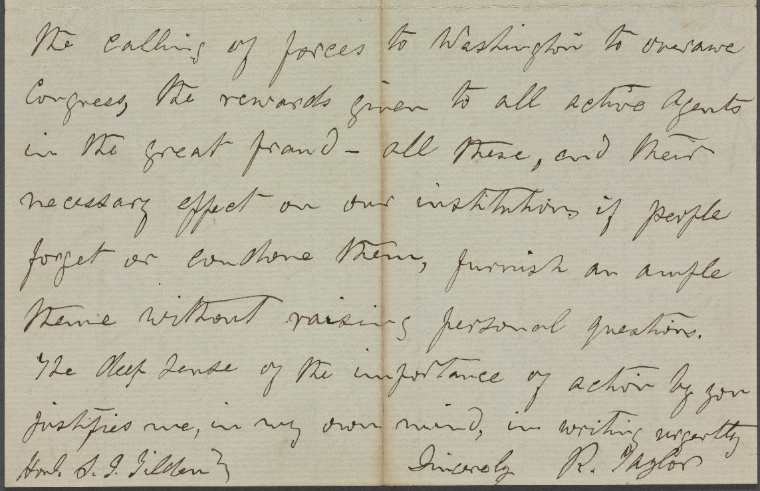 the calling of forces to Washington to overawe
Congress, the rewards given to all active Agents
in the great fraud – all these, and their
necessary effect on our institutions if people
forget or condone them, furnish an ample
theme without raising personal questions.
The deep sense of the importance of action by you
justifies me, in my own mind, in writing urgently
Honl. S. J. Tilden } Sincerely R. Taylor